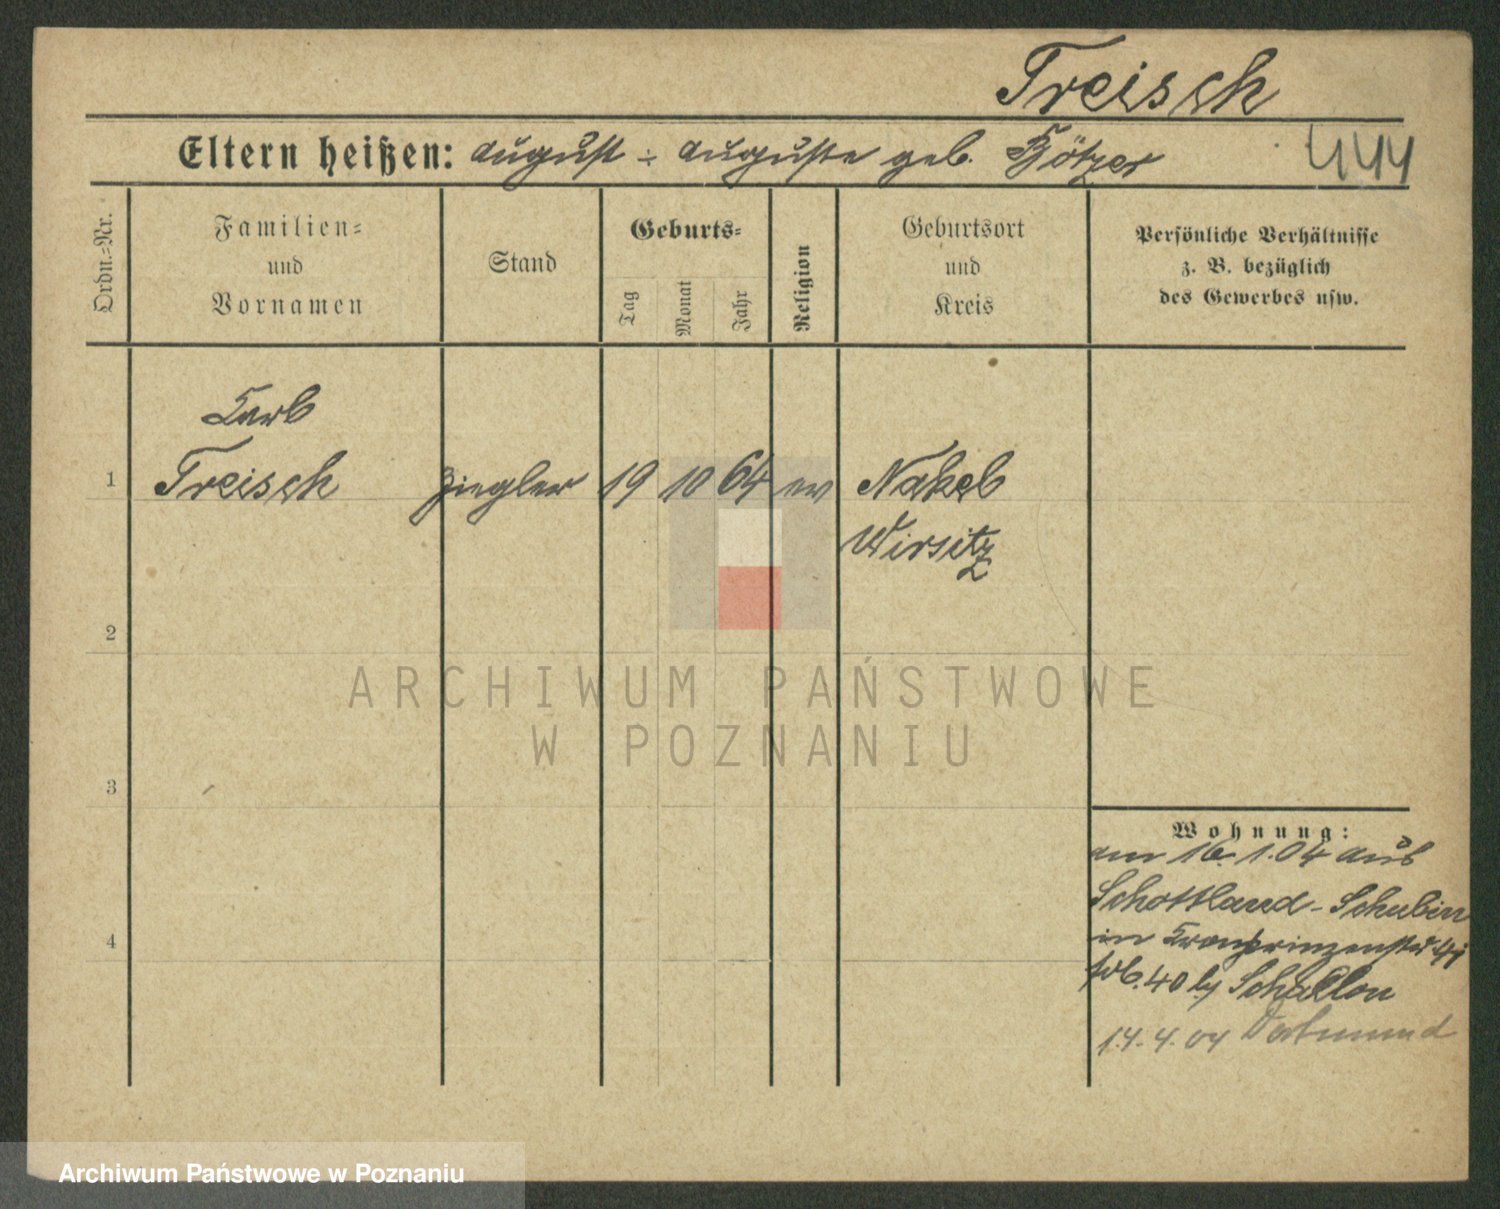 Treisch
Eltern heißen: August ÷ Auguste geb. Götzer
444
Ordn.=Nr.
Familien=
und
Vornamen
Stand
Geburts=
Tag
Monat
Jahr
Religion
Geburtsort
und
Kreis
Persönliche Verhältnisse
z. B. bezüglich
des Gewerbes usw.
Carl
1 Treisch Ziegler 19 10 64 ev Nakel
Wirsitz
2
3
4
Wohnung:
am 16.1.04 aus
Schottland - Schubin
in Kronprinzenstr
40 Schallon
14.4.04 Dortmund
ARCHIWUM PAŃSTWOWE
W POZNANIU
Archiwum Państwowe w Poznaniu